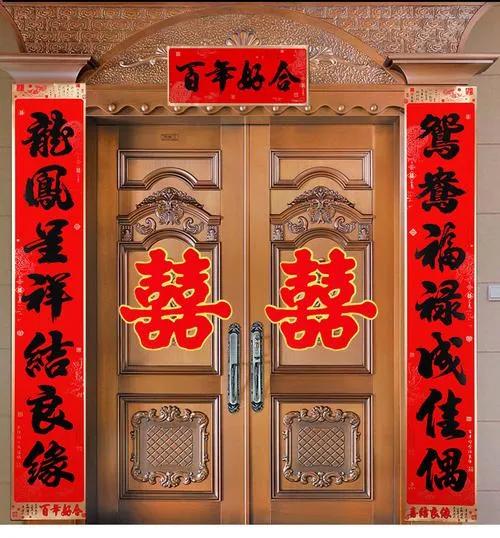 百年好合
鴛鴦福禄成佳偶
龍鳳呈祥結良緣
囍 囍
百年好合
喜結良緣